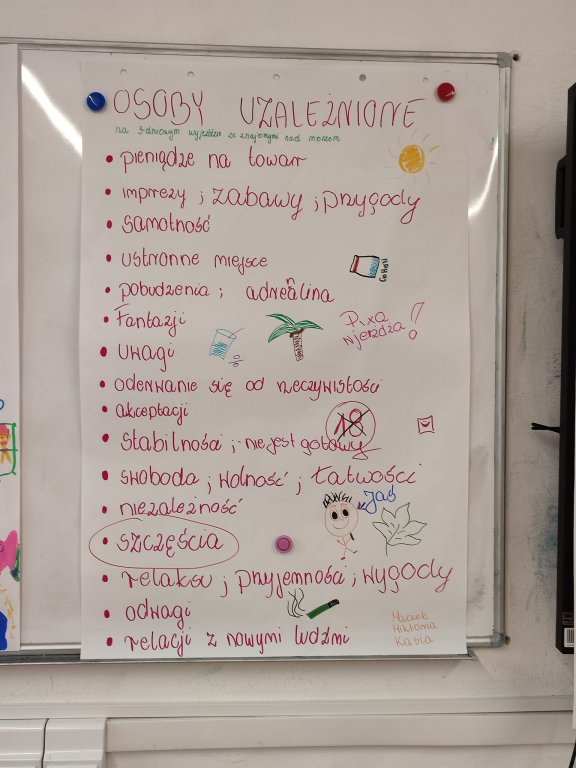 OSOBY UZALEŻNIONE
na 3-dniowym wyjeździe ze znajomymi nad morzem
• pieniądze na towar
• imprezy ; zabawy ; przygody
• samotność
• ustronne miejsce
• pobudzenia ; adrenalina
• Fantazji
Pixa wjeżdża!
• uwagi
%
• oderwanie się od rzeczywistości
• akceptacji
18
• stabilności ; - nie jest gotowy
• swoboda ; wolność ; łatwości
Jaś
• niezależność
• szczęścia
• relaksu ; przyjemności ; wygody
• odwagi
• relacji z nowymi ludźmi
Maciek
Wiktoria
Kasia